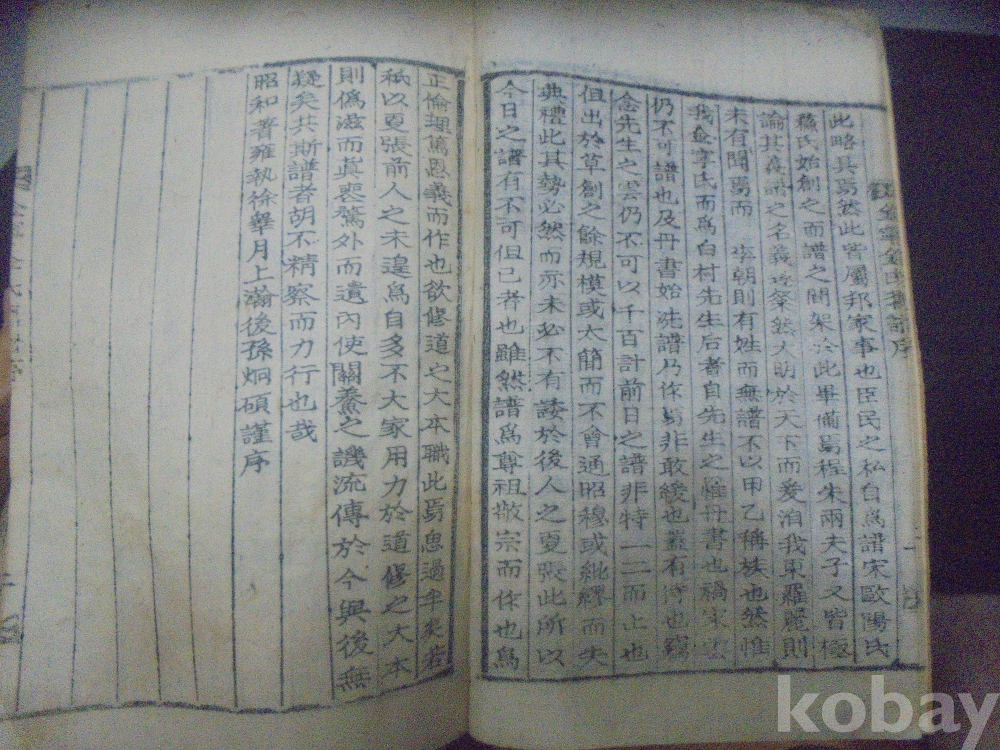 此略具焉然此皆屬邦家事也臣民之私自爲譜宋歐陽氏
蘇氏始創之而譜之間架於此畢備焉程朱兩夫子又皆極
論其爲譜之名義 粲然大明於天下而爰洎我東羅麗則
未有聞焉而 李朝則有姓而無譜不以甲乙稱族也然惟
我盆寧氏而爲白村先生后者自先生之 丹書也禍家
仍不可譜也及丹書始洗譜乃作焉非敢緩也盖有待也竊
念先生之雲仍不可以千百計前日之譜非特一二而止也
但出於草創之餘規模或太簡而不會通昭穆或紕繆而失
典禮此其勢必然而亦未必不有諉於後人之更張此所以
今日之譜有不可但已者也雖然譜爲尊祖敬宗而作也爲
正倫理篤恩義而作也欲修道之大本職此焉思過半矣若
秪以更張前人之未遑爲自多不大家用力於道修之大本
則僞滋而眞喪騖外而遺內使關 之譏流傳於今與後無
疑矣共斯譜者胡不精察而力行也哉
昭和著雍執徐 月上瀚後孫炯碩謹序
kobay